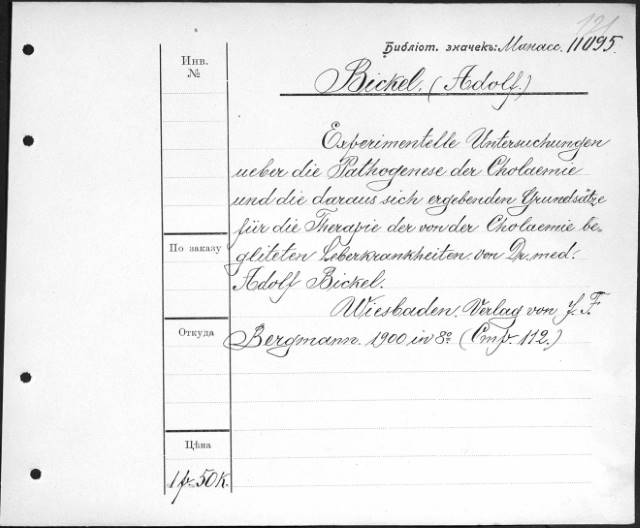 121
Библіот. значекъ: Манасс. 11095.
Инв.
№
Bickel, (Adolf.)
Experimentelle Untersuchungen
ueber die Pathogenese der Cholaemie
und die daraus sich ergebenden Grundsätze
für die Therapie der von der Cholaemie be-
По заказу
gliteten Leberkrankheiten von Dr. med.
Adolf Bickel.
Wiesbaden. Verlag von J. F.
Откуда
Bergmann. 1900 in 8º (Стр. 112.)
Цѣна
1 р. 50 к.